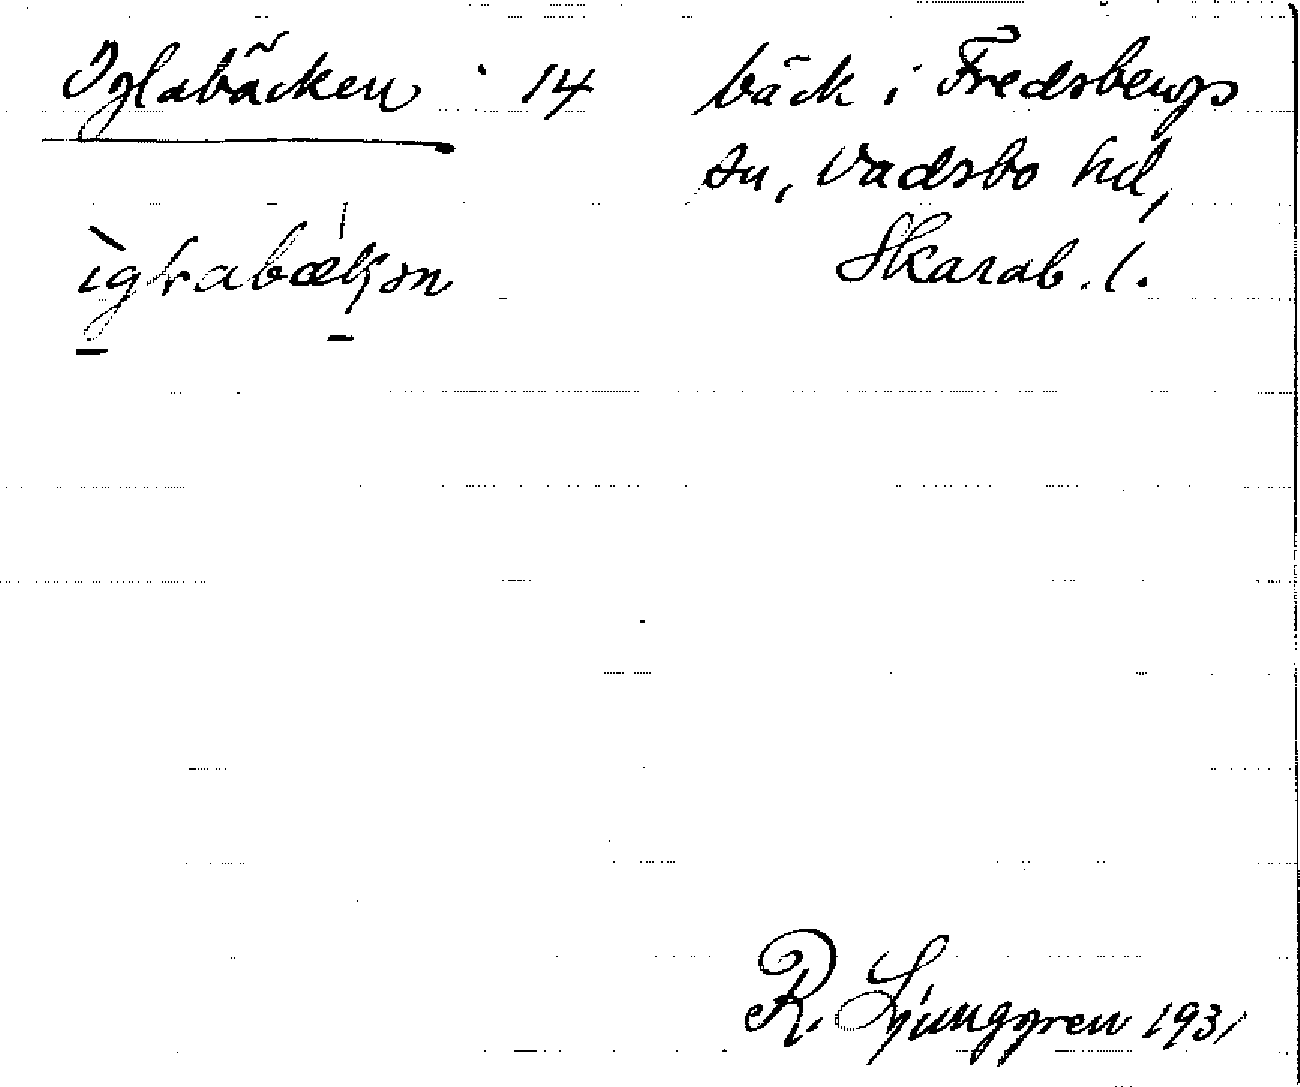 Iglabäcken 14 bäck i Fredsbergs
sn, Vadsbo hd,
Skarab. l.
R. Ljunggren 1931